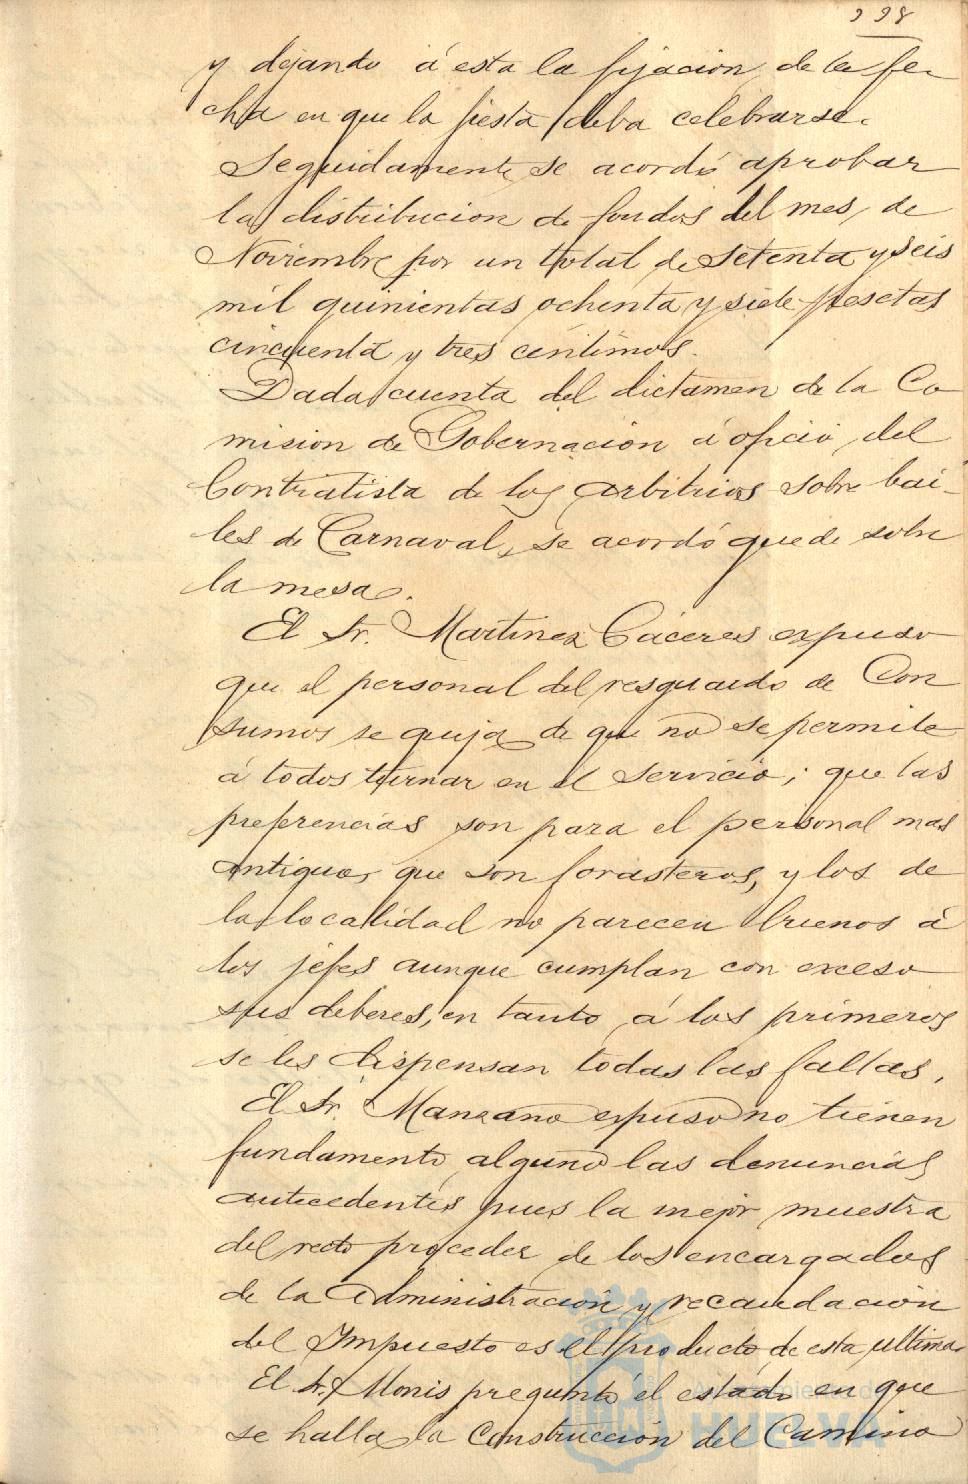 238
y dejando á esta la fijacion de la fe-
cha en que la fiesta deba celebrarse.
Seguidamente se acordó aprobar
la distribucion de fondos del mes de
Noviembre por un total de setenta y seis
mil quinientas ochenta y siete pesetas
cincuenta y tres centimos.
Dada cuenta del dictamen de la Co
mision de Gobernacion á oficio del
Contratista de los arbitrios sobre bai-
les de Carnaval, se acordó quede sobre
la mesa.
El Sr. Martinez Cáceres expuso
que el personal del resguardo de Con
sumos se queja de que no se permite
á todos turnar en el servicio; que las
preferencias son para el personal mas
antiguo, que son forasteros, y los de
la localidad no parecen buenos á
los jefes aunque cumplan con exceso
sus deberes, en tanto á los primeros
se les dispensan todas las faltas.
El Sr. Manzano expuso no tienen
fundamento alguno las denuncias
antecedentes pues la mejor muestra
del recto proceder de los encargados
de la Administración y recaudación
del Impuesto es el producto de esta ultima.
El Sr. Monis preguntó el estado en que
se halla la construccion del Camino
Ayuntamiento de
HUELVA